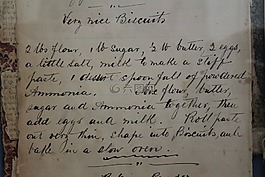 Very nice Biscuits
2 lbs flour, 1 lb sugar, ½ lb butter, 2 eggs,
a little salt, milk to make a stiff
paste, 1 dessert spoonfull of powdered
Ammonia. flour, butter,
sugar and Ammonia together, then
add eggs and milk. Roll paste
out very thin, shape into Biscuits, and
bake in a slow oven.